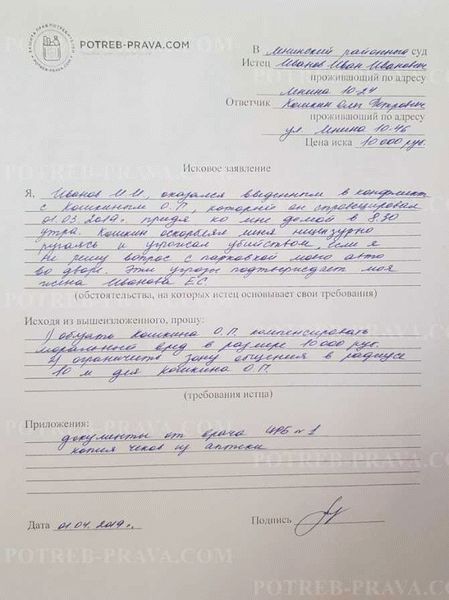 POTREB-PRAVA.COM
В Ленинский районный суд
Истец Иванов Иван Иванович
проживающий по адресу
Ленина 10-24
Ответчик Кошкин Олег Петрович
проживающий по адресу
ул. Ленина 10-46
Цена иска 10 000 руб.
Исковое заявление
Я, Иванов И.И, оказался введенным в конфликт
с Кошкиным О.П, который он спровоцировал
01.03.2019г. придя ко мне домой в 8:30
утра. Кошкин оскорблял меня нецензурно
ругаясь и угрожал убийством, если я
не решу вопрос с парковкой моно авто
во дворе. Эти угрозы подтверждает моя
жена Иванова Е.С
(обстоятельства, на которых истец основывает свои требования)
Исходя из вышеизложенного, прошу:
1) обязать Кошкина О.П. компенсировать
моральный вред в размере 10 000 руб.
2) ограничить зону общения в радиусе
10 м для Кошкина О.П.
(требования истца)
Приложения:
документы от врача ЦРБ №1
копия чеков из аптеки
Дата 01.04.2019г.
Подпись
POTREB-PRAVA.COM